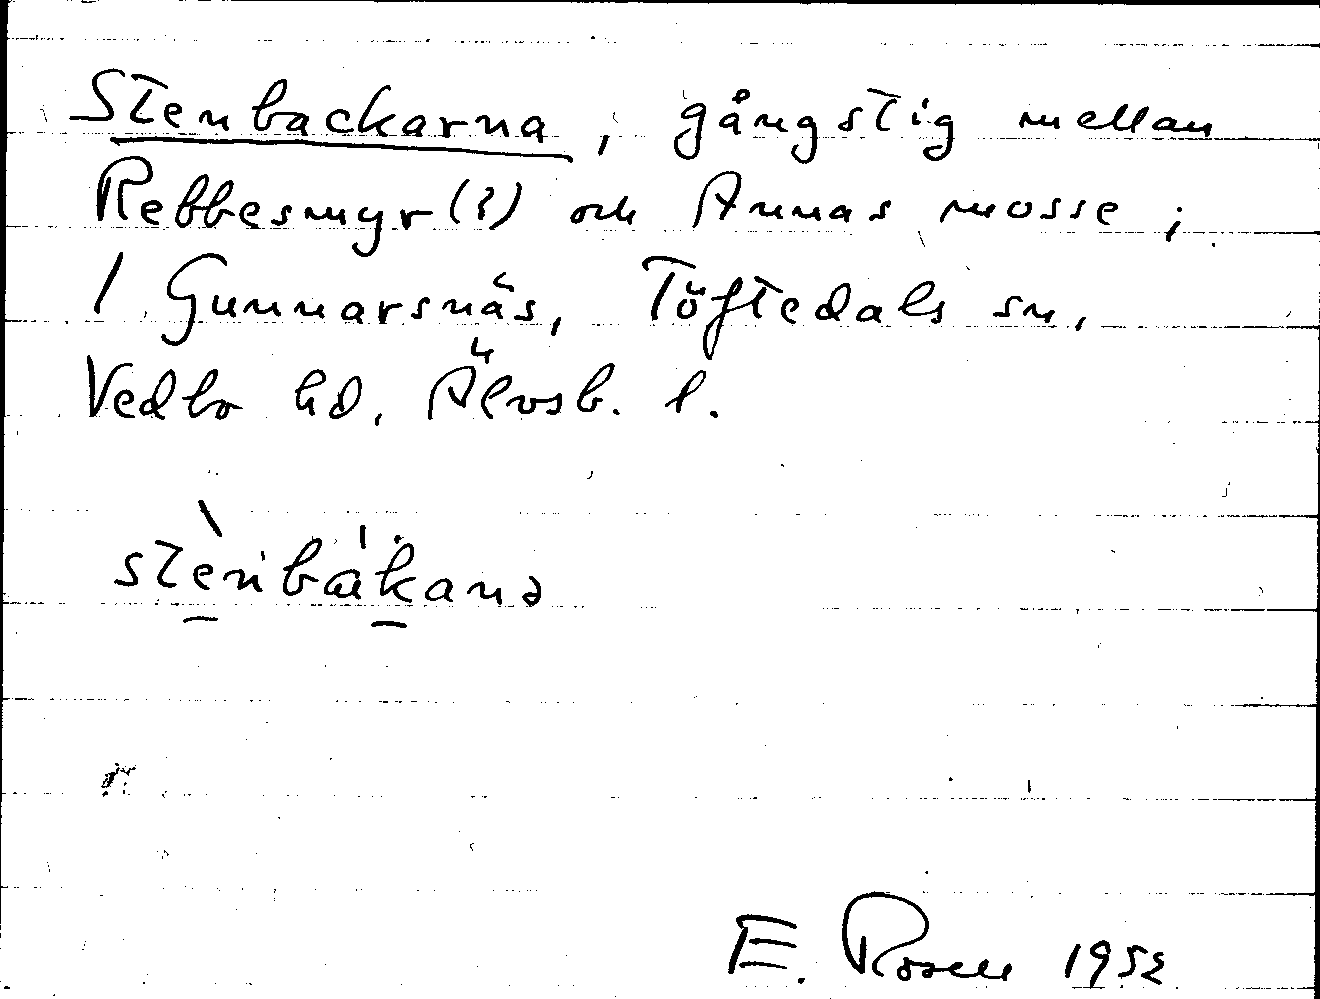 Stenbackarna, gångstig mellan
Rebbesmyr (?) och Annas mosse;
1 Gunnarsnäs, Töftedals sn,
Vedbo hd, Älvsb. l.
stènbákanə
E. Rosen 1952